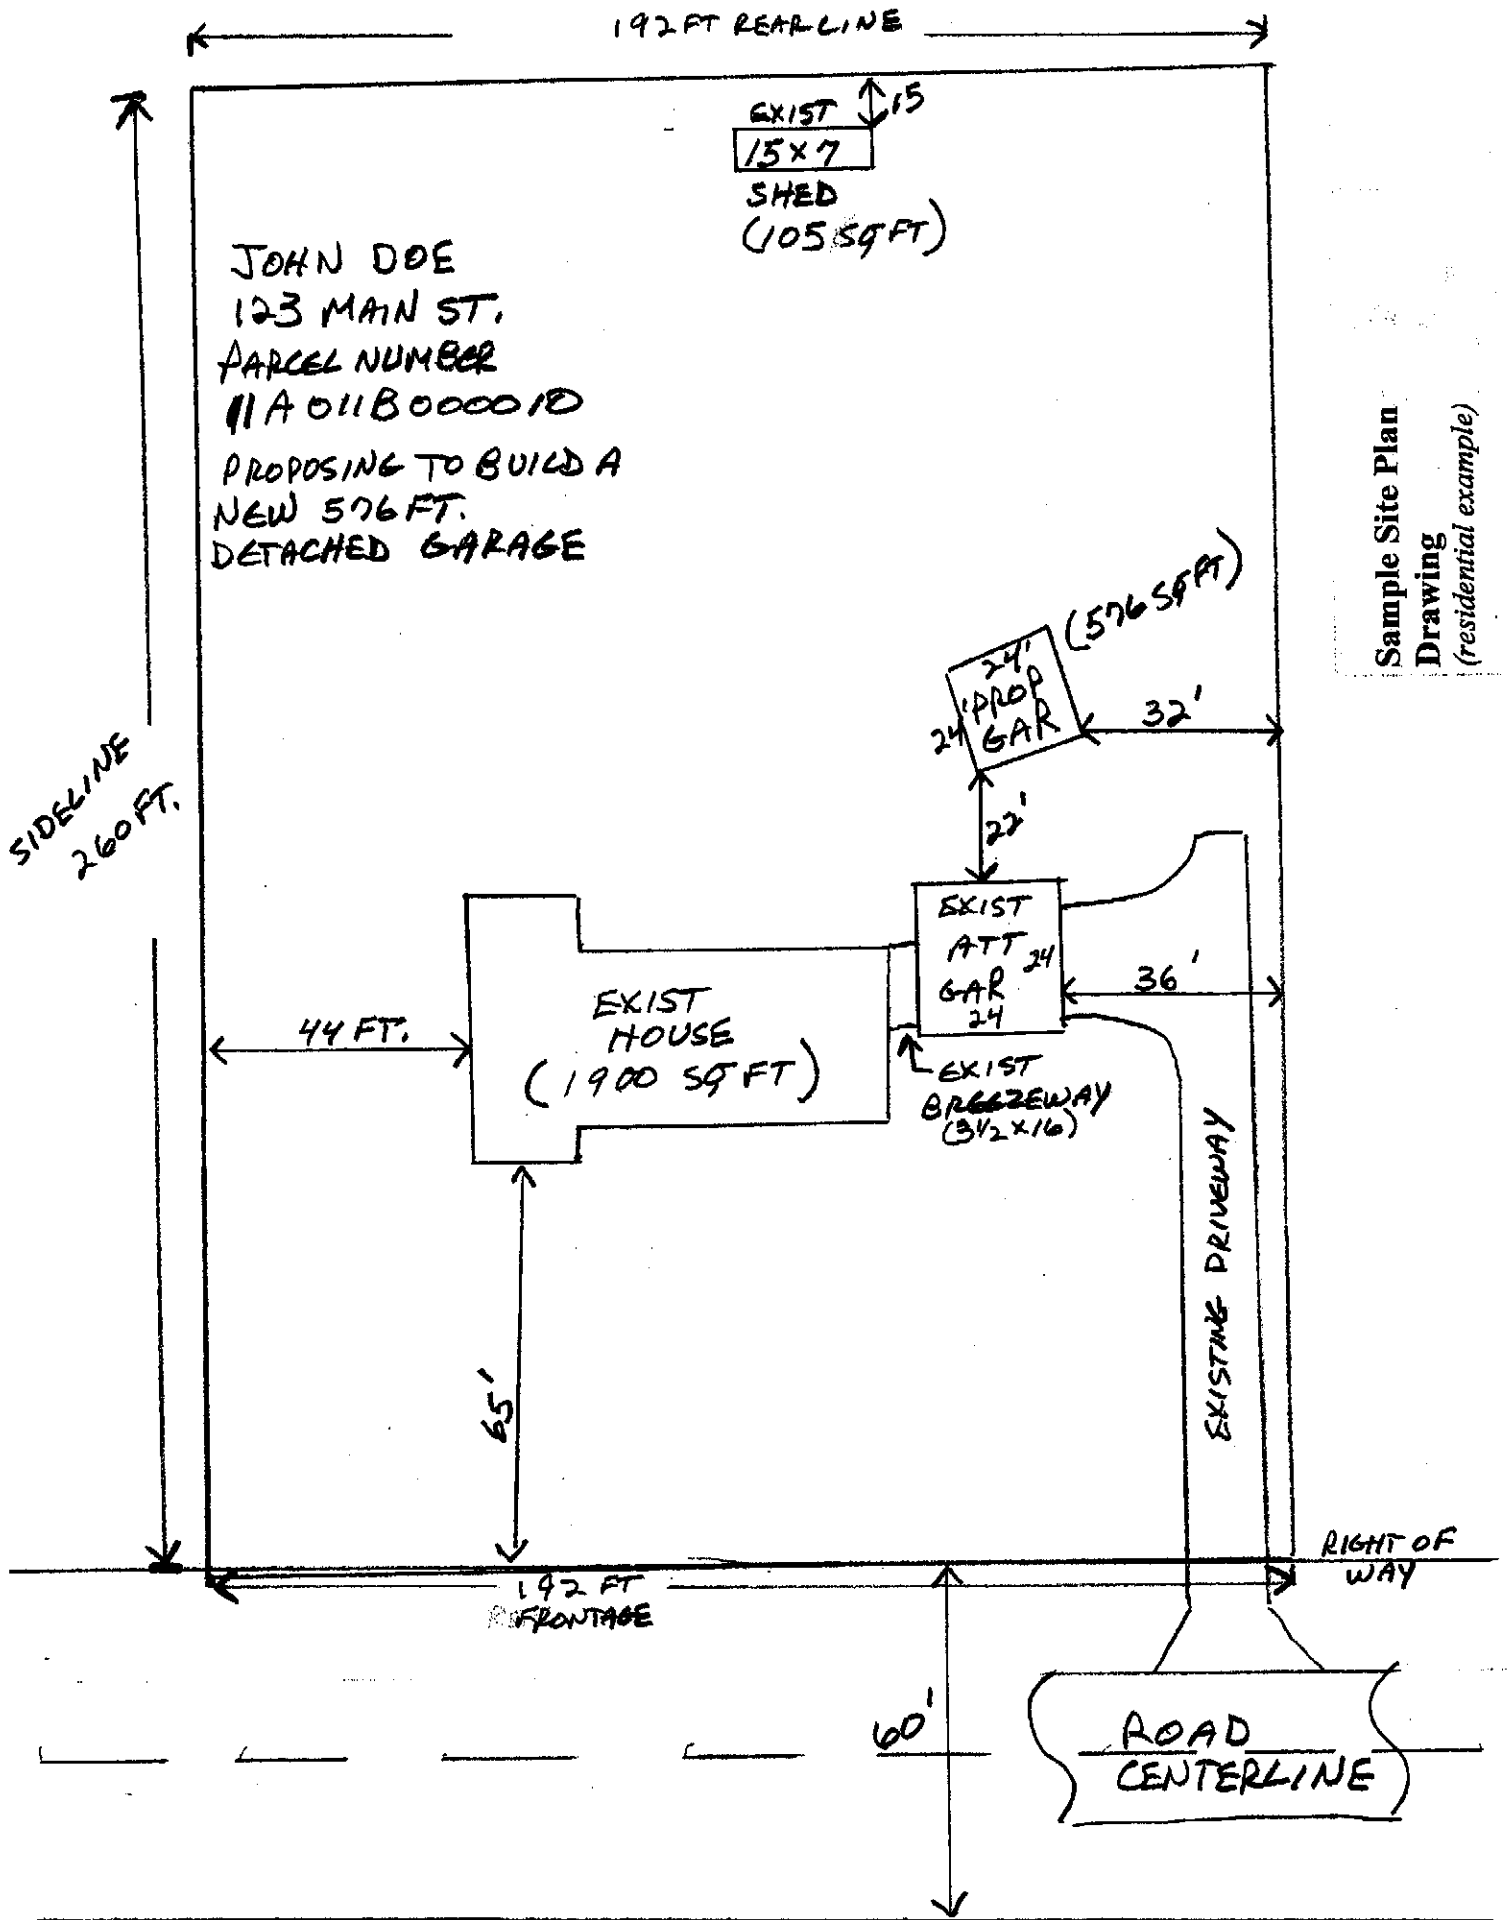 192 FT REAR LINE
EXIST
15
15 x 7
SHED
(105 SQ FT)
JOHN DOE
123 MAIN ST.
PARCEL NUMBER
11A011B000010
PROPOSING TO BUILD A
NEW 576 FT.
DETACHED GARAGE
Sample Site Plan
Drawing
(residential example)
(576 SQ FT)
24'
PROP
24'
GAR
32'
22'
SIDELINE
260 FT.
EXIST
ATT
24
GAR
24
36'
44 FT.
EXIST
HOUSE
(1900 SQ FT)
EXIST
BREEZEWAY
(3 1/2 x 16)
EXISTING DRIVEWAY
65'
RIGHT OF
WAY
192 FT
FRONTAGE
60'
ROAD
CENTERLINE